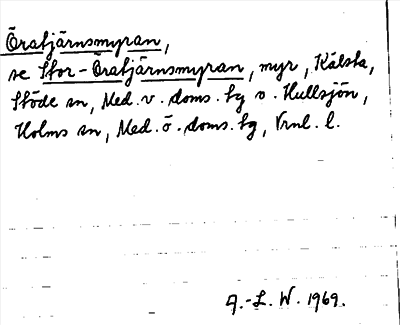 Öratjärnsmyran,
se Stor-Öratjärnsmyran, myr, Kälsta,
Stöde sn, Med. v. doms. sg o. Hullsjön,
Holms sn, Med. ö. doms. sg, Vrnl. l.
A.-L. W. 1969.